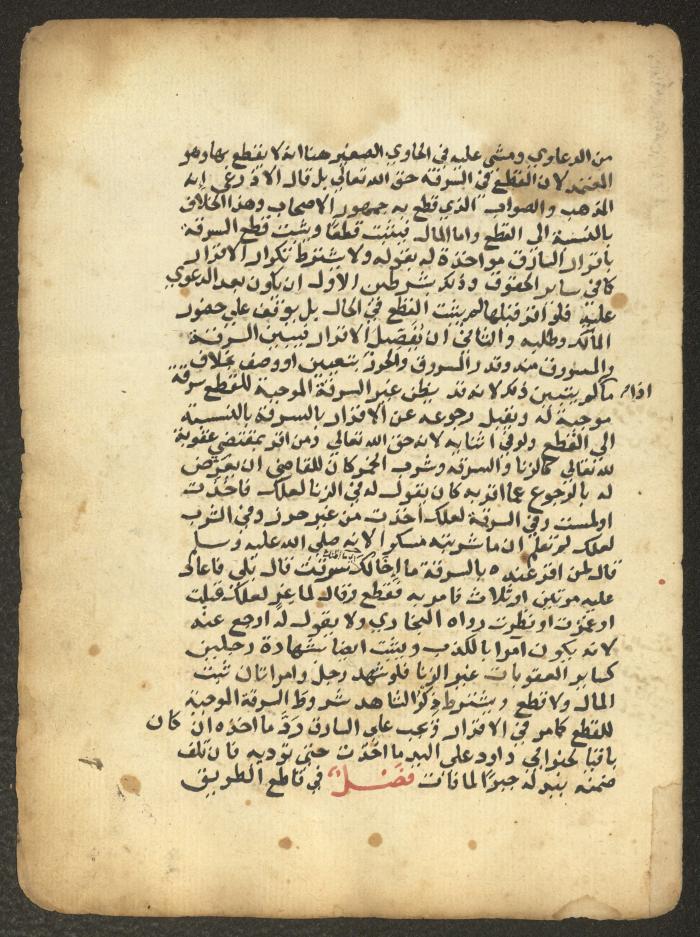 من الدعاوي ومشى عليه في الحاوي الصغير هنا انه لا يقطع بها وهو
المعتمد لان القطع في السرقة حق الله تعالى بل قال الاذرعي انه
المذهب والصواب الذي قطع به جمهور الاصحاب وهذا الخلاف
بالنسبة الى القطع واما المال فيثبت قطعا ويثبت قطع السرقة
باقرار السارق مواخذة له بقوله ولا يشترط تكرار الاقرار
كما في ساير الحقوق وذلك بشرطين الاول ان يكون بعد الدعوي
عليه فلو اقر قبلها لم يثبت القطع في الحال بل يوقف على حضور
المالك وطلبه والثاني ان يفصل الاقرار فيبين السرقة
والمسروق منه وقدر المسروق والحرز بتعيين او وصف بخلاف
ما اذا لم يبين ذلك لانه قد يظن غير السرقة الموجبة للقطع سرقة
موجبة له ويقبل رجوعه عن الاقرار بالسرقة بالنسبة
الى القطع ولو في اثنايه لانه حق الله تعالى ومن اقر بمقتضي عقوبة
لله تعالى كالزنا والسرقة وشرب الخمر كان للقاضي ان يعرض
له بالرجوع عما اقر به كان يقول له في الزنا لعلك فاخذت
او لمست وفي السرقة لعلك اخذت من غير حرز وفي الشرب
لعلك لم تعلم ان ما شربته مسكرا لانه صلى الله عليه وسلم
قال لمن اقر عنده بالسرقة ما اخالك سرقت قال بلي فاعاد
عليه مرتين او ثلاث فامر به فقطع وقال لماعز لعلك قبلت
او غمزت او نظرت رواه البخاري ولا يقول له ارجع عنه
لانه يكون امرا بالكذب ويثبت ايضا بشهادة رجلين
كساير العقوبات غير الزنا فلو شهد رجل وامراتان ثبت
المال ولا قطع ويشترط ذكر الشاهد شروط السرقة الموجبة
للقطع كما مر في الاقرار ويجب على السارق رد ما اخذه ان كان
باقيا لخبر ابي داود على اليد ما اخذت حتى توديه فان تلف
ضمنه ببدله جبرا لما فات فصل في قاطع الطريق